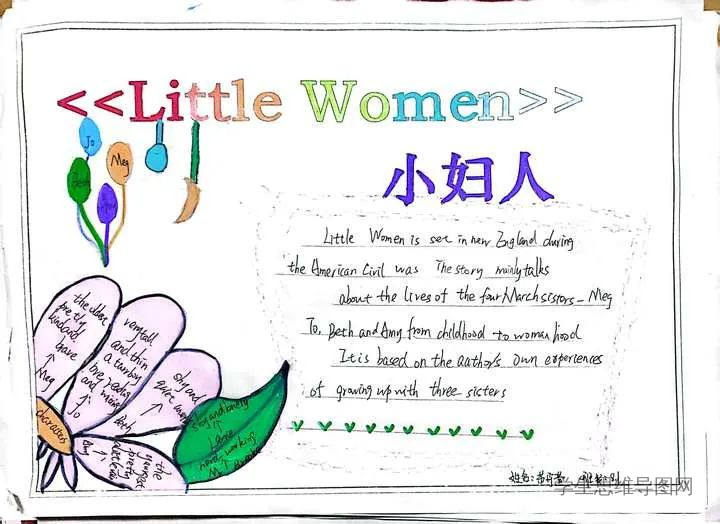 <<Little Women>>
小妇人
Jo
Meg
Little Women is set in new England during
the American Civil was The story mainly talks
about the lives of the four March sistors - Meg
To, Beth and Amy from childhood to woman hood
It is based on the author's own experiences
of growing up with three sisters
the oldest
pretty
kind and
brave
Meg
very tall
and thin
a tomboy
Jo
shy and
quiet
Beth
characters
Amy
the
youngest
pretty
shy and lonely
Laurie
hard working
姓名:
学生思维导图网